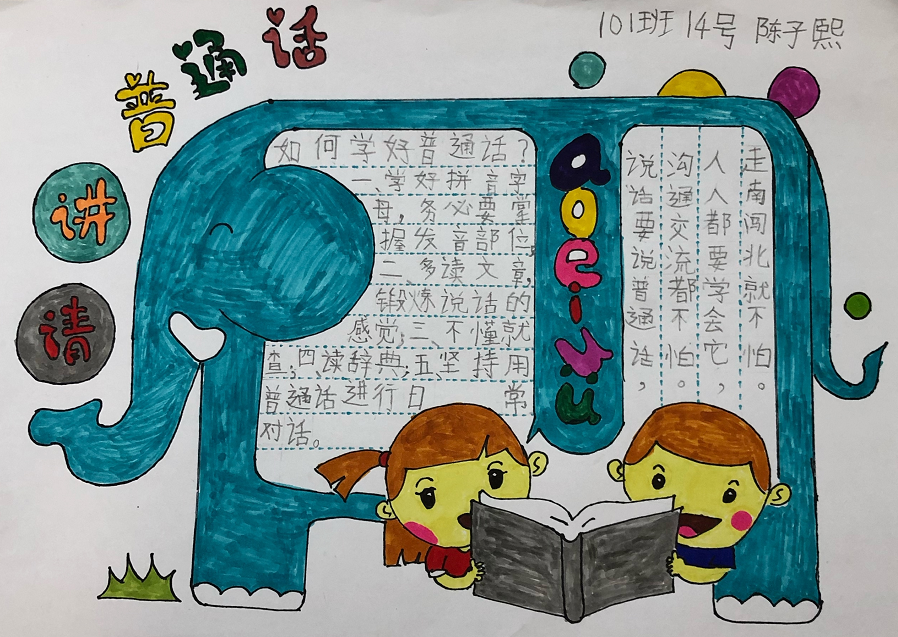 101班 14号 陈子熙
请讲普通话
如何学好普通话?
一、学好拼音字
母,务必要掌
握发音部位,
二、多读文章,
锻炼说话的
感觉;三、不懂就
查;四、读辞典;五、坚持用
普通话进行日 常
对话。
aoeiuü
说话要说普通话,
沟通交流都不怕。
人人都要学会它,
走南闯北就不怕。